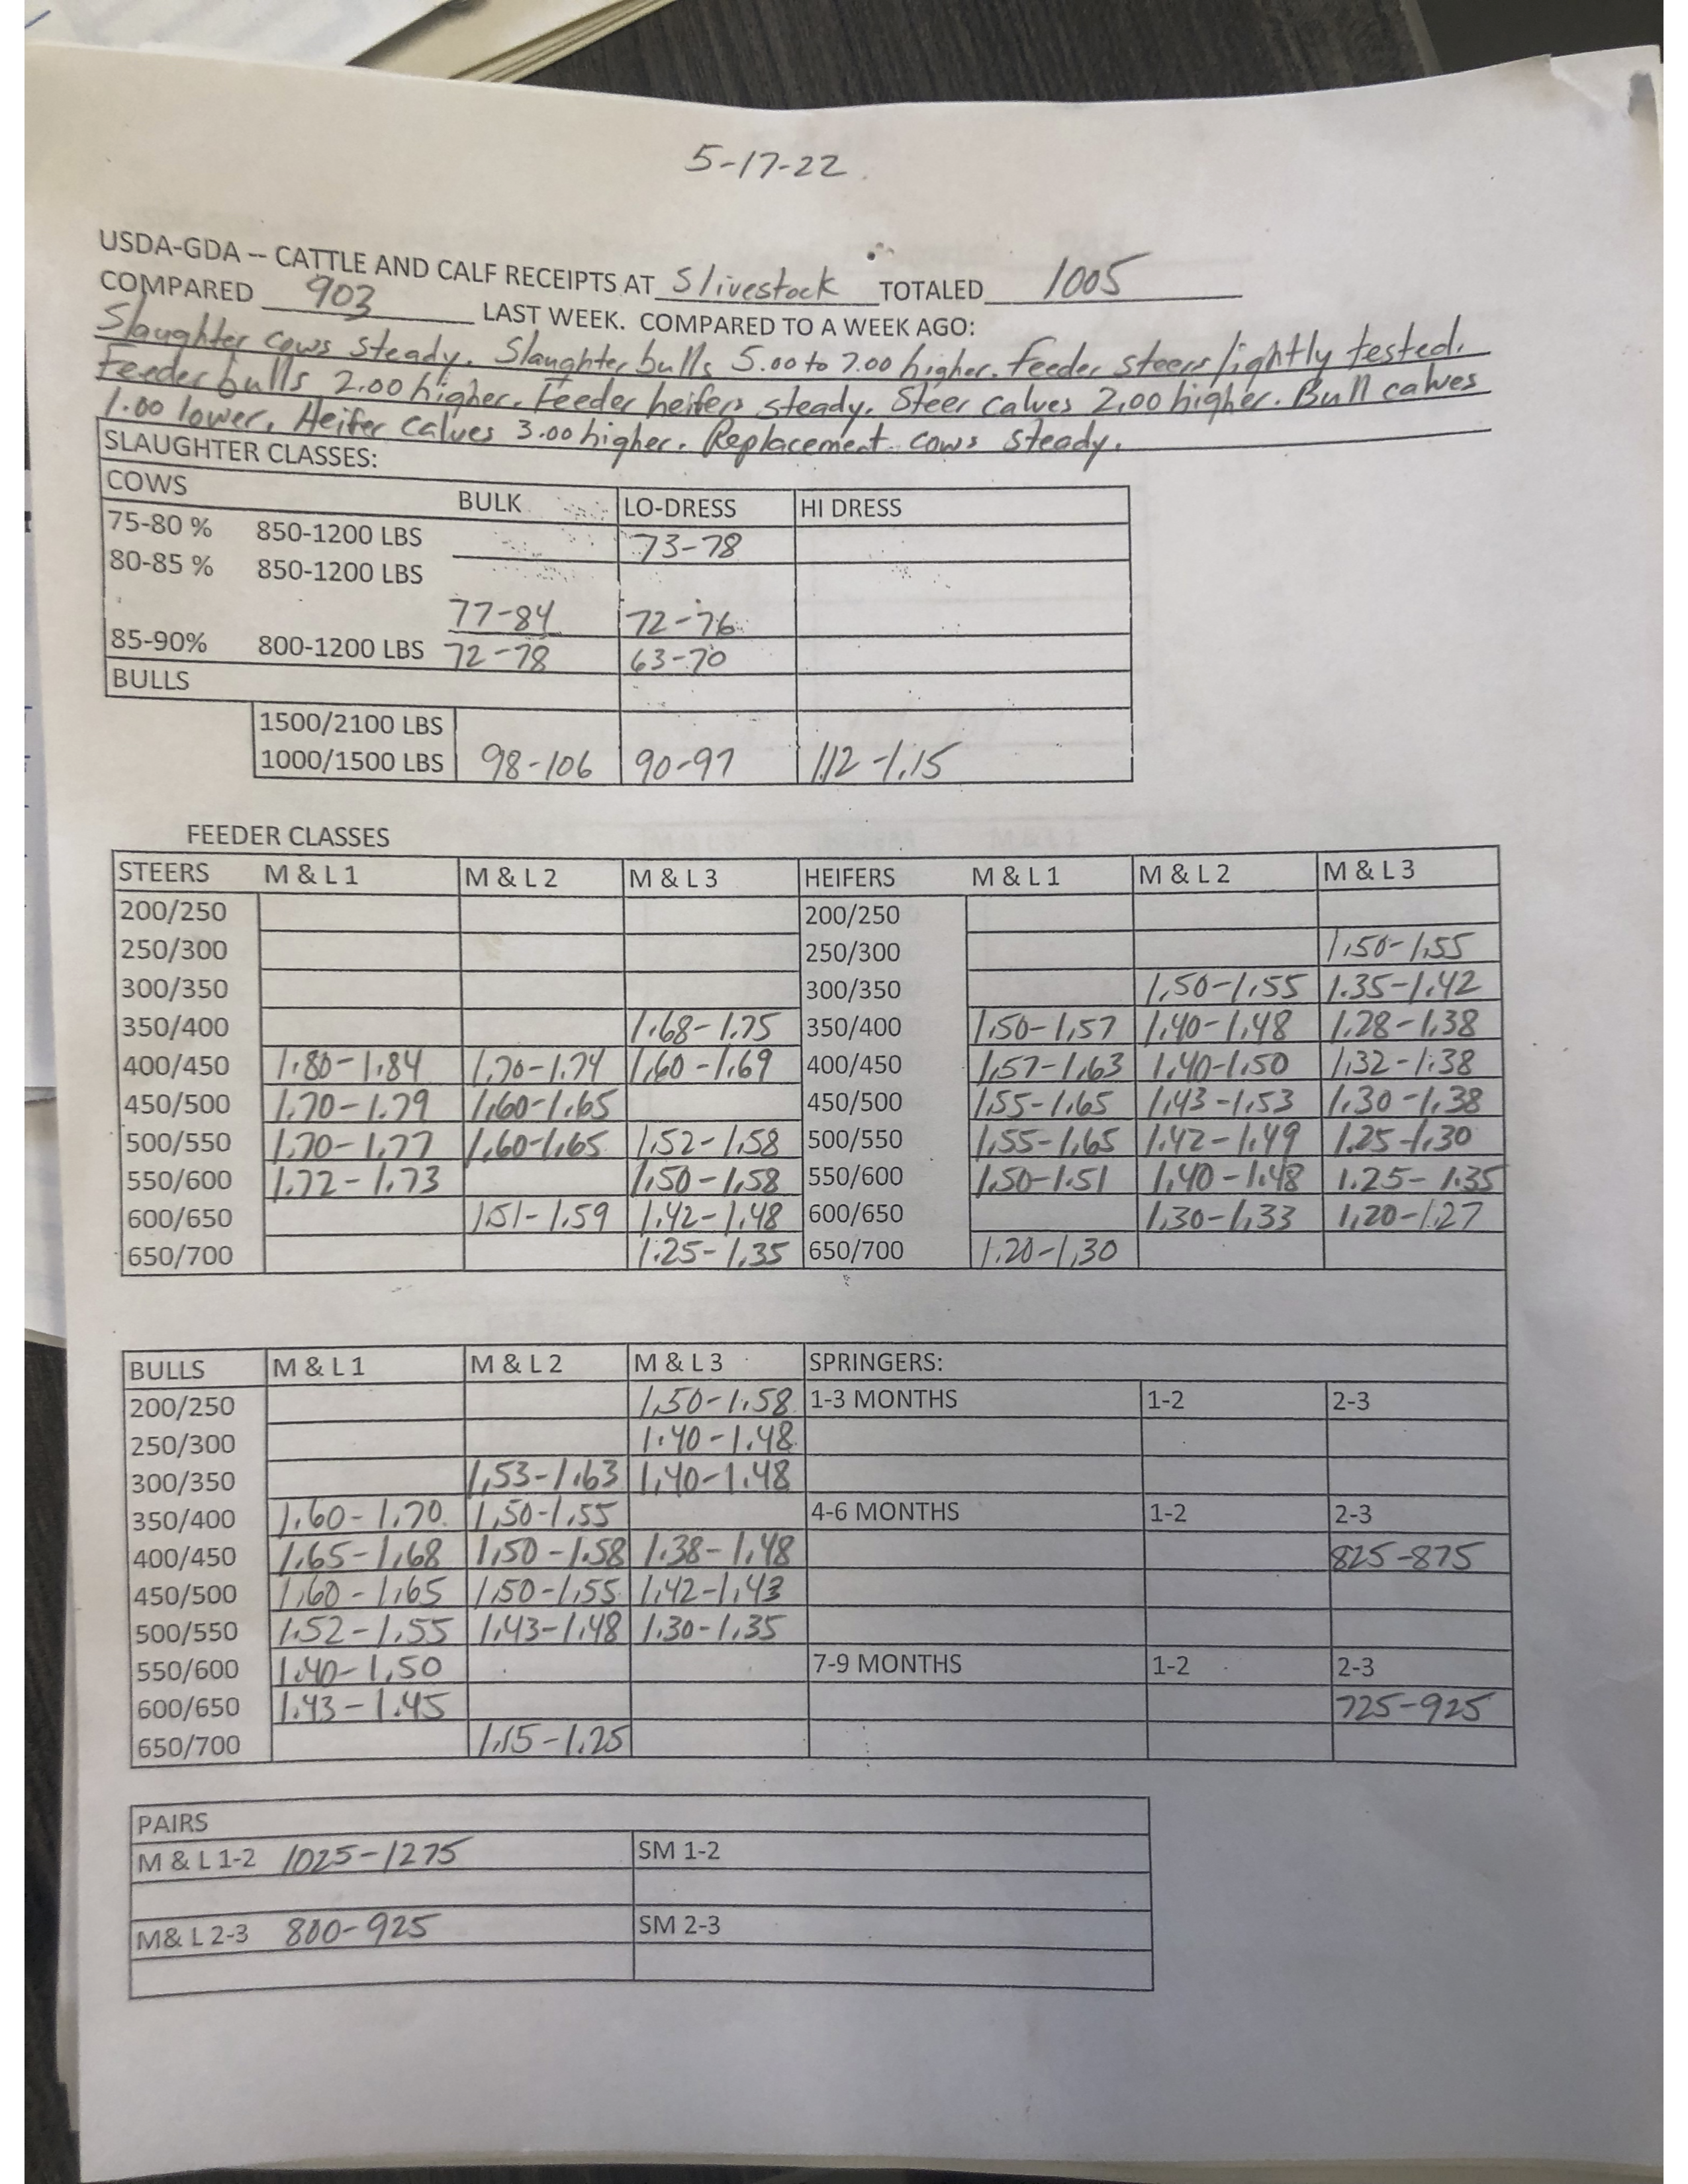 5-17-22
USDA-GDA -- CATTLE AND CALF RECEIPTS AT Slivestock TOTALED 1005
COMPARED 903 LAST WEEK. COMPARED TO A WEEK AGO:
Slaughter cows steady. Slaughter bulls 5.00 to 7.00 higher. Feeder steers lightly tested.
Feeder bulls 2.00 higher. Feeder heifers steady. Steer calves 2.00 higher. Bull calves
1.00 lower. Heifer calves 3.00 higher. Replacement cows steady.
SLAUGHTER CLASSES:
COWS BULK LO-DRESS HI DRESS
75-80 % 850-1200 LBS 73-78
80-85 % 850-1200 LBS
77-84 72-76
85-90% 800-1200 LBS 72-78 63-70
BULLS
1500/2100 LBS
1000/1500 LBS 98-106 90-97 1.12-1.15
FEEDER CLASSES
STEERS M & L 1 M & L 2 M & L 3 HEIFERS M & L 1 M & L 2 M & L 3
200/250 200/250
250/300 250/300 1.50-1.55
300/350 300/350 1.50-1.55 1.35-1.42
350/400 1.68-1.75 350/400 1.50-1.57 1.40-1.48 1.28-1.38
400/450 1.80-1.84 1.70-1.74 1.60-1.69 400/450 1.57-1.63 1.40-1.50 1.32-1.38
450/500 1.70-1.79 1.60-1.65 450/500 1.55-1.65 1.43-1.53 1.30-1.38
500/550 1.70-1.77 1.60-1.65 1.52-1.58 500/550 1.55-1.65 1.42-1.49 1.25-1.30
550/600 1.72-1.73 1.50-1.58 550/600 1.50-1.51 1.40-1.48 1.25-1.35
600/650 1.51-1.59 1.42-1.48 600/650 1.30-1.33 1.20-1.27
650/700 1.25-1.35 650/700 1.20-1.30
BULLS M & L 1 M & L 2 M & L 3 SPRINGERS:
200/250 1.50-1.58 1-3 MONTHS 1-2 2-3
250/300 1.40-1.48
300/350 1.53-1.63 1.40-1.48
350/400 1.60-1.70 1.50-1.55 4-6 MONTHS 1-2 2-3
400/450 1.65-1.68 1.50-1.58 1.38-1.48 825-875
450/500 1.60-1.65 1.50-1.55 1.42-1.43
500/550 1.52-1.55 1.43-1.48 1.30-1.35
550/600 1.40-1.50 7-9 MONTHS 1-2 2-3
600/650 1.43-1.45 725-925
650/700 1.15-1.25
PAIRS
M & L 1-2 1025-1275 SM 1-2
M& L 2-3 800-925 SM 2-3